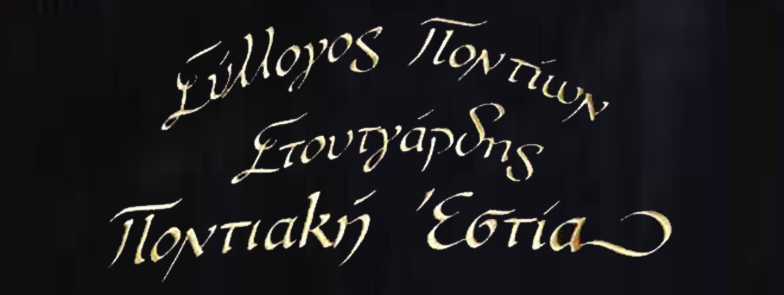 Σύλλογος Ποντίων
Στουτγάρδης
Ποντιακή Ἑστία